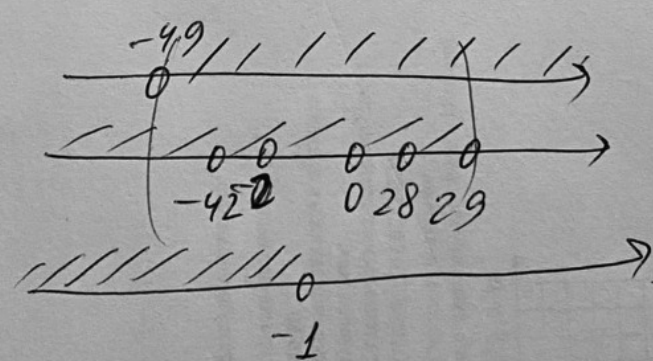 -49
-42 -2 0 28 29
-1